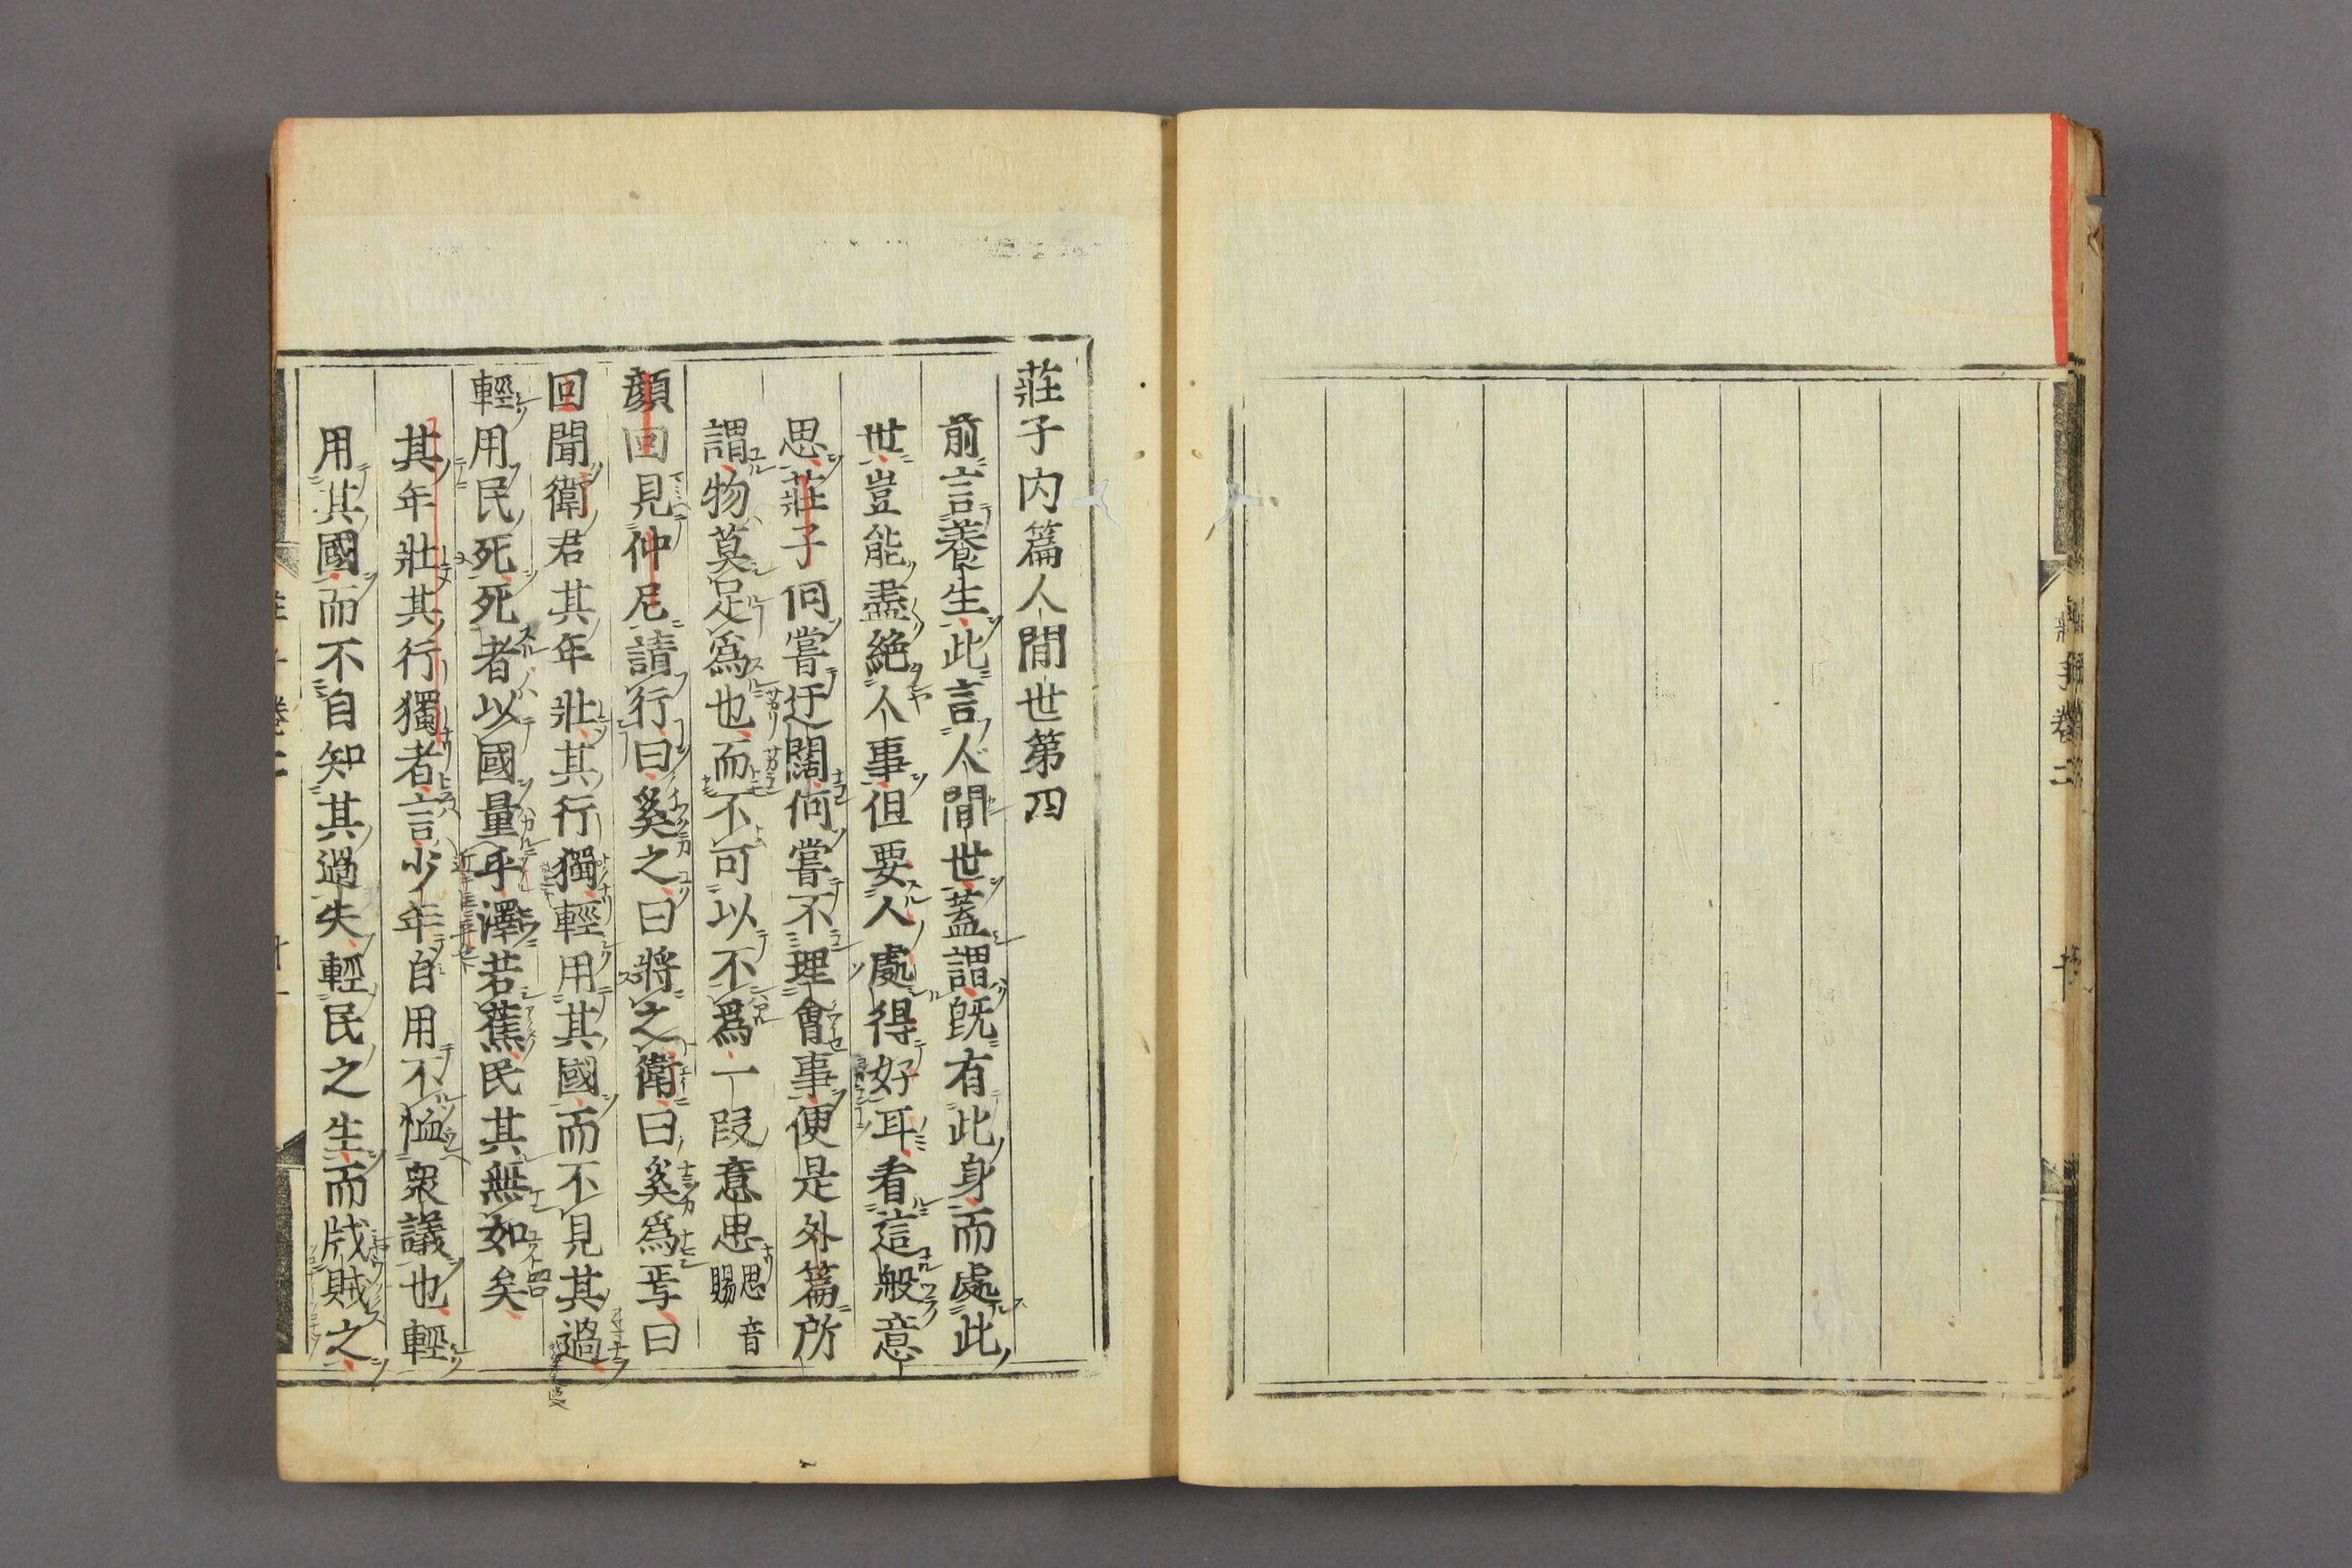 莊子内篇人間世第四
前言養生此言人間世蓋謂旣有此身而處此
世豈能盡絶人事但要人處得好耳看這般意
思莊子何嘗迂闊何嘗不理會事便是外篇所
謂物莫足爲也而不可以不爲一段意思思音賜
顔回見仲尼請行曰奚之曰將之衛曰奚爲焉曰
回聞衛君其年壯其行獨輕用其國而不見其過
輕用民死死者以國量乎澤若蕉民其無如矣
其年壯其行獨者言少年自用不恤衆議也輕
用其國而不自知其過失輕民之生而戕賊之